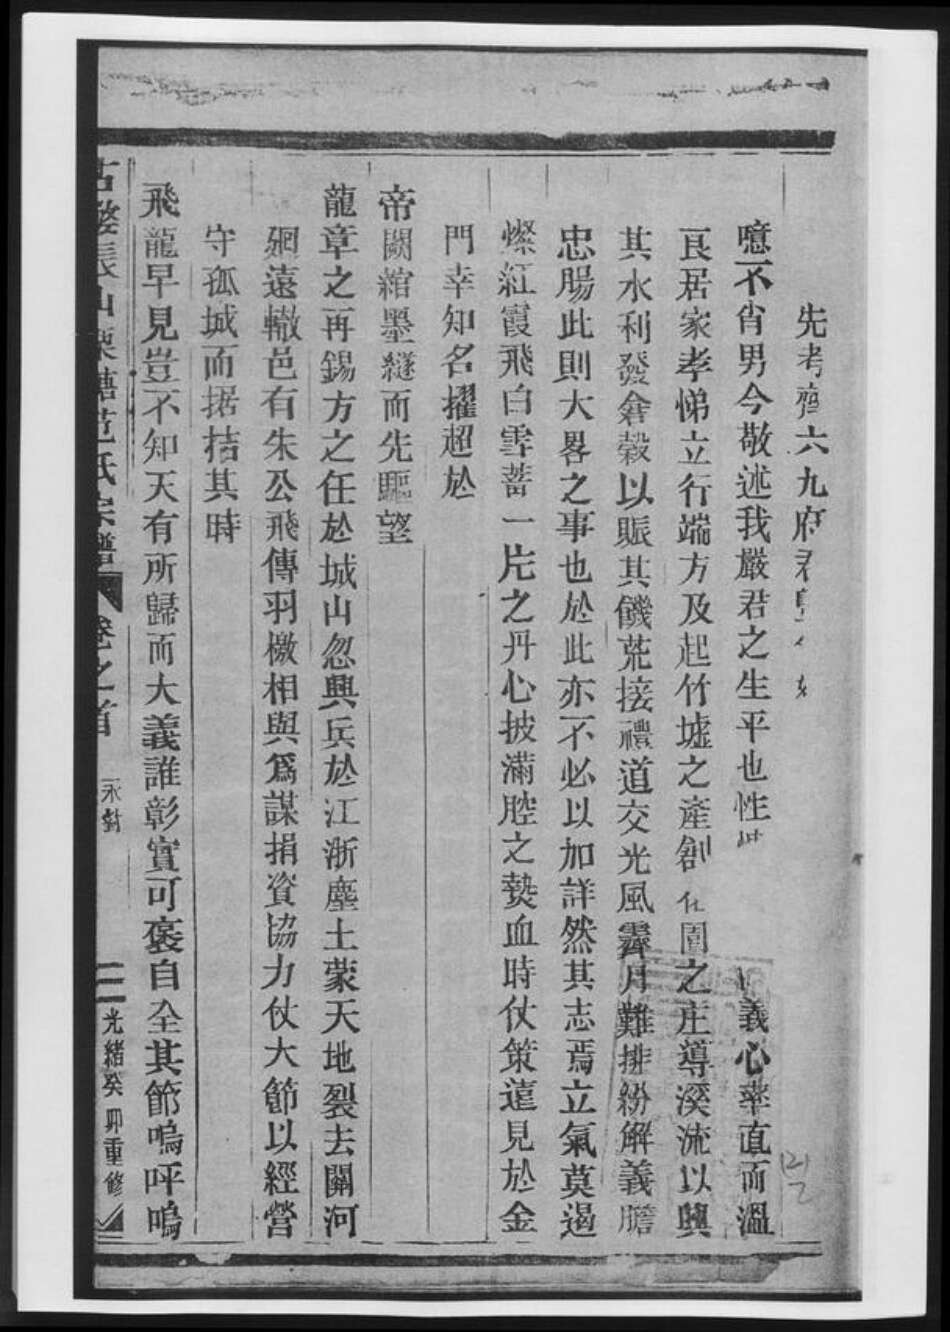 先考齊六九府君
噫不肖男今敬述我嚴君之生平也性 義心率直而溫
良居家孝悌立行端方及起竹墟之產創 圍之庄導溪流以興
其水利發倉穀以賑其饑荒接禮道交光風霽月難排紛解義膽
忠腸此則大畧之事也於此亦不必以加詳然其志焉立氣莫遏
燦紅霞飛白雲蓄一片之丹心披滿腔之熱血時仗策遠見於金
門幸知名擢超於
帝闕綰墨繸而先驅望
龍章之再錫方之任於城山忽興兵於江浙塵土蒙天地裂去關河
廻遠轍邑有朱公飛傳羽檄相與爲謀捐資協力仗大節以經營
守孤城而据拮其時
飛龍早見豈不知天有所歸而大義誰彰實可褒自全其節嗚呼嗚
古婺長山栗塘范氏宗譜 卷之首 永封 二 光緒癸卯重修